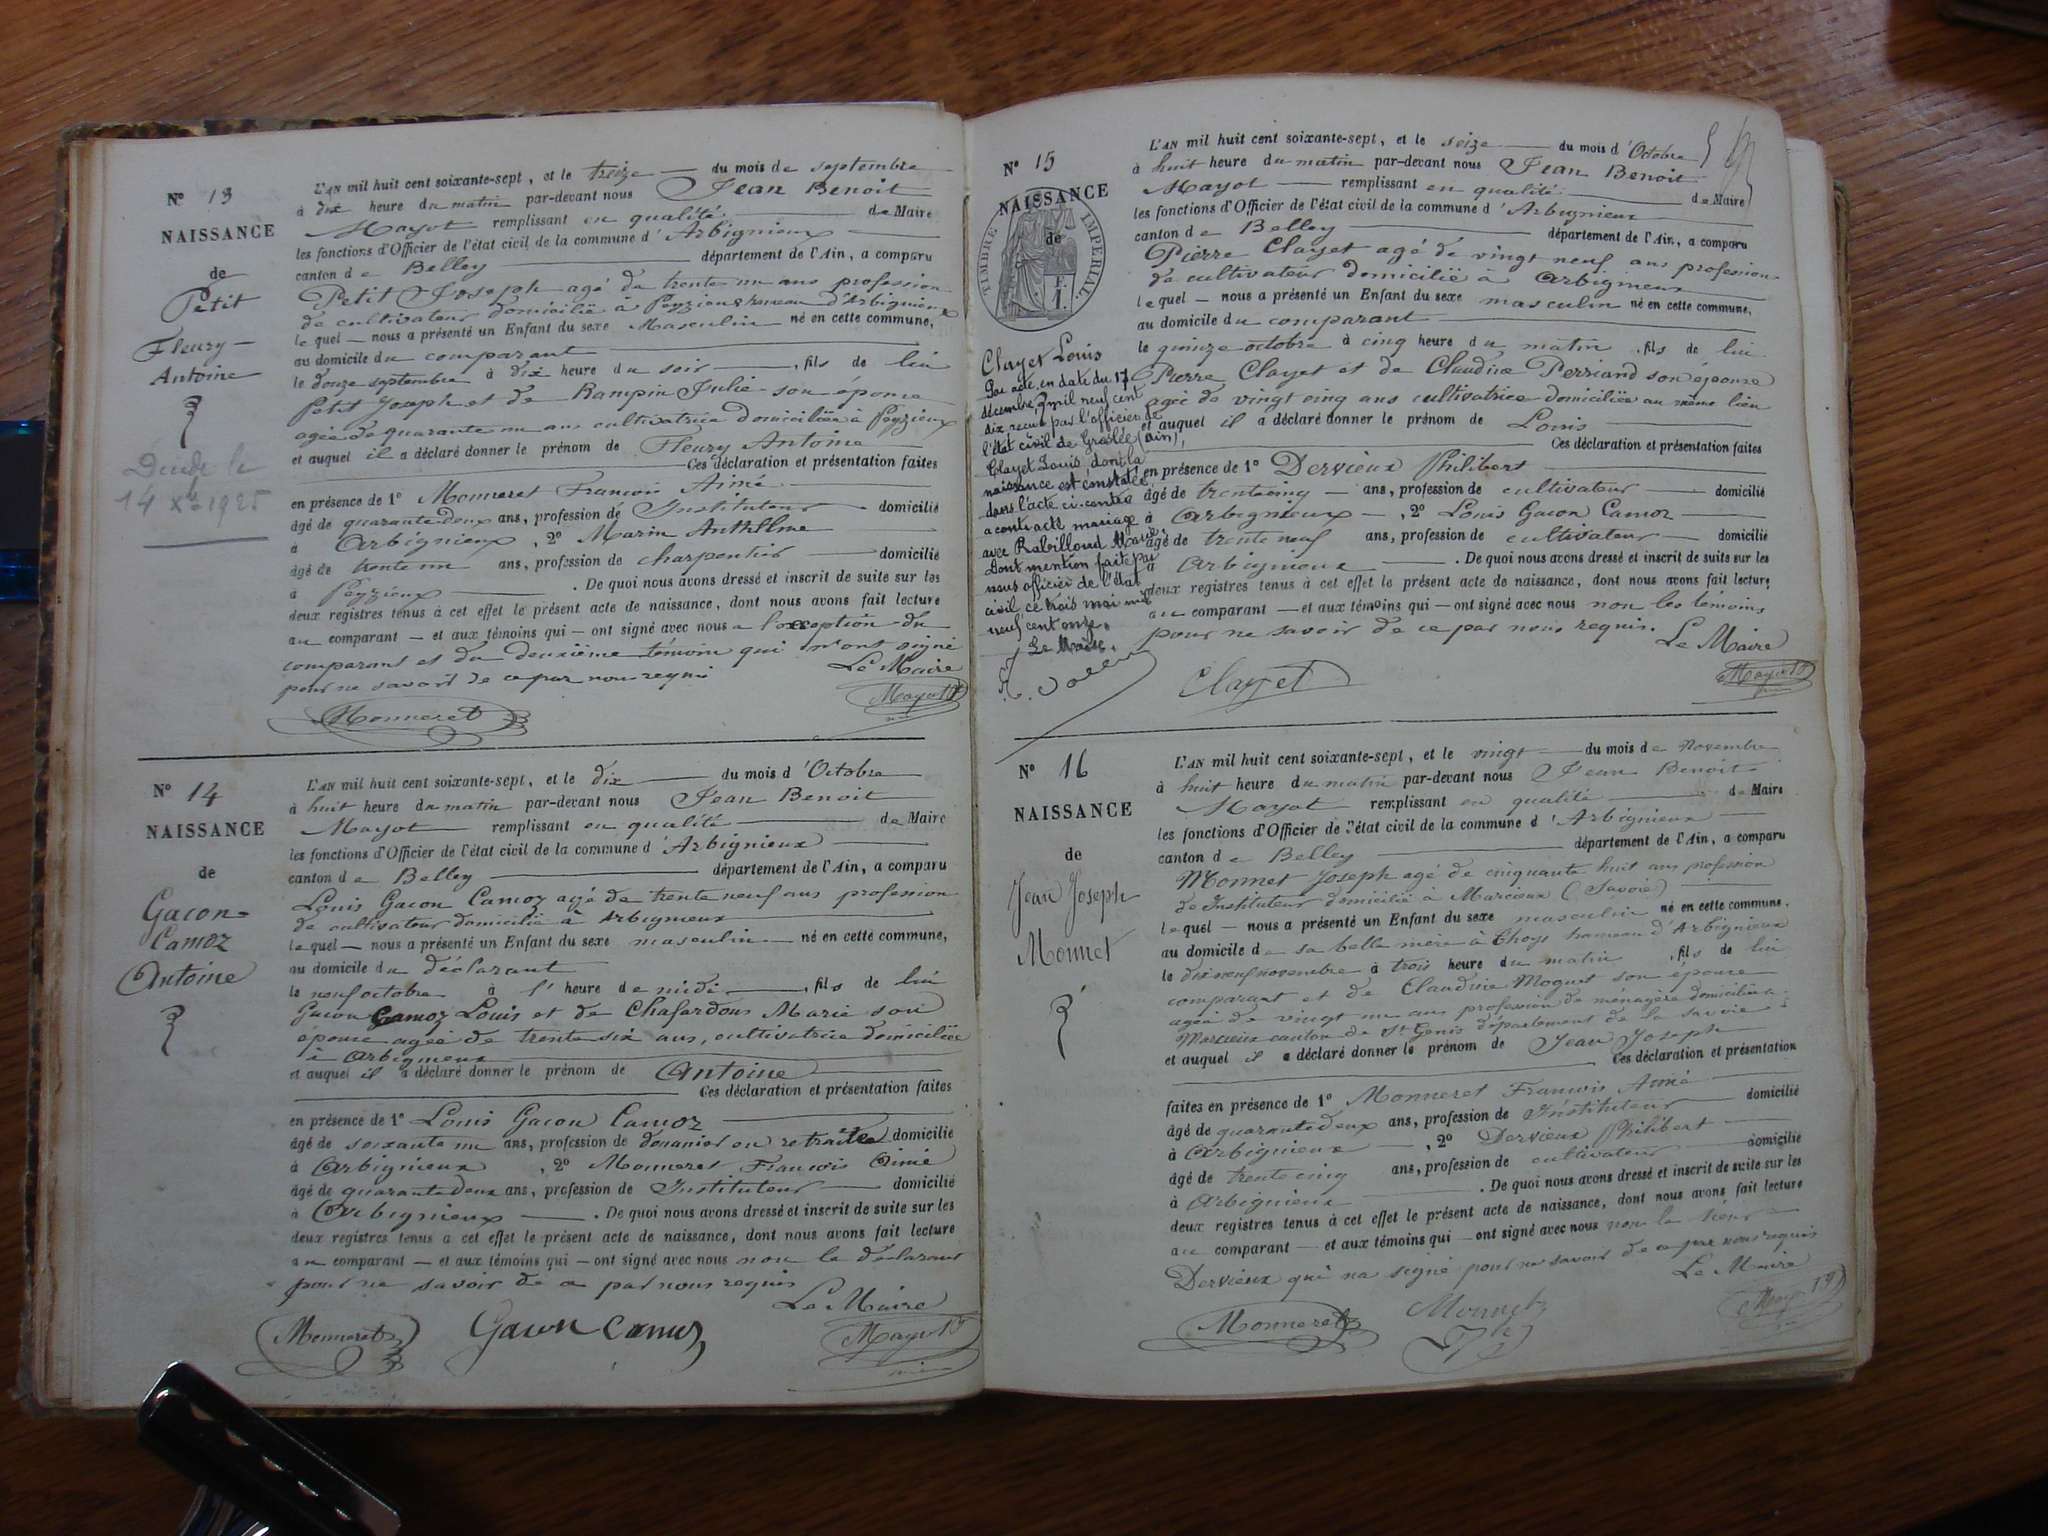 N° 13
NAISSANCE
de
Petit
Fleury
Antoine
Décédé le
14 Xbre 1925
L'AN mil huit cent soixante-sept, et le treize du mois de septembre
à dix heure du matin par-devant nous Jean Benoit
Mayot remplissant en qualité de Maire
les fonctions d'Officier de l'état civil de la commune d'Arbignieux
canton de Belley département de l'Ain, a comparu
Petit Joseph agé de trente un ans profession
de cultivateur domicilié à Peyzieux hameau d'Arbignieux
lequel nous a présenté un Enfant du sexe Masculin né en cette commune,
au domicile du comparant
le douze septembre à dix heure du soir, fils de lui
Petit Joseph et de Rampin Julie son épouse
agée de quarante un ans cultivatrice domiciliée à Peyzieux
et auquel il a déclaré donner le prénom de Fleury Antoine
Ces déclaration et présentation faites
en présence de 1° Monneret François Aimé
âgé de quarante deux ans, profession de Instituteur domicilié
à Arbignieux, 2° Marin Anthelme
âgé de trente un ans, profession de charpentier domicilié
à Peyzieux. De quoi nous avons dressé et inscrit de suite sur les
deux registres tenus à cet effet le présent acte de naissance, dont nous avons fait lecture
au comparant et aux témoins qui ont signé avec nous a l'exception du
comparant et du deuxième témoin qui n'ont signé
pour ne savoir de ce par nous requis
Le Maire
Monneret
Mayot
N° 14
NAISSANCE
de
Gacon-
Camoz
Antoine
L'AN mil huit cent soixante-sept, et le dix du mois d'Octobre
à huit heure du matin par-devant nous Jean Benoit
Mayot remplissant en qualité de Maire
les fonctions d'Officier de l'état civil de la commune d'Arbignieux
canton de Belley département de l'Ain, a comparu
Louis Gacon Camoz agé de trente neuf ans profession
de cultivateur domicilié à Arbignieux
lequel nous a présenté un Enfant du sexe masculin né en cette commune,
au domicile du déclarant
le neuf octobre à l'heure de midi, fils de lui
Gacon Camoz Louis et de Chafardon Marie son
épouse agée de trente six ans, cultivatrice domiciliée
à Arbignieux
et auquel il a déclaré donner le prénom de Antoine
Ces déclaration et présentation faites
en présence de 1° Louis Gacon Camoz
âgé de soixante un ans, profession de douanier en retraite domicilié
à Arbignieux, 2° Monneret François Aimé
âgé de quarante deux ans, profession de Instituteur domicilié
à Arbignieux. De quoi nous avons dressé et inscrit de suite sur les
deux registres tenus à cet effet le présent acte de naissance, dont nous avons fait lecture
au comparant et aux témoins qui ont signé avec nous non le déclarant
pour ne savoir de ce par nous requis
Le Maire
Monneret
Gacon Camoz
Mayot
N° 15
NAISSANCE
de
TIMBRE IMPERIAL
1 F.
Clayet Louis
Par acte en date du 17
décembre mil neuf cent
dix reçu par l'officier de
l'état civil de Groslée (ain),
Clayet Louis, dont la
naissance est constatée
dans l'acte ci-contre
a contracté mariage
avec Rabilloud Marie.
Dont mention faite par
nous officier de l'état
civil ce trois mai mil
neuf cent onze.
Le Maire,
L'AN mil huit cent soixante-sept, et le seize du mois d'Octobre
à huit heure du matin par-devant nous Jean Benoit
Mayot remplissant en qualité de Maire
les fonctions d'Officier de l'état civil de la commune d'Arbignieux
canton de Belley département de l'Ain, a comparu
Pierre Clayet agé de vingt neuf ans profession
de cultivateur domicilié à Arbignieux
lequel nous a présenté un Enfant du sexe masculin né en cette commune,
au domicile du comparant
le quinze octobre à cinq heure du matin, fils de lui
Pierre Clayet et de Claudine Perriand son épouse
agée de vingt cinq ans cultivatrice domiciliée au même lieu
et auquel il a déclaré donner le prénom de Louis
Ces déclaration et présentation faites
en présence de 1° Dervieux Philibert
âgé de trente cinq ans, profession de cultivateur domicilié
à Arbignieux, 2° Louis Gacon Camoz
âgé de trente neuf ans, profession de cultivateur domicilié
à Arbignieux. De quoi nous avons dressé et inscrit de suite sur les
deux registres tenus à cet effet le présent acte de naissance, dont nous avons fait lecture,
au comparant et aux témoins qui ont signé avec nous non les témoins
pour ne savoir de ce par nous requis.
Le Maire
Clayet
Mayot
N° 16
NAISSANCE
de
Jean Joseph
Monnet
L'AN mil huit cent soixante-sept, et le vingt du mois de Novembre
à huit heure du matin par-devant nous Jean Benoit
Mayot remplissant en qualité de Maire
les fonctions d'Officier de l'état civil de la commune d'Arbignieux
canton de Belley département de l'Ain, a comparu
Monnet Joseph agé de cinquante huit ans profession
de Instituteur domicilié à Marcieux (Savoie)
lequel nous a présenté un Enfant du sexe masculin né en cette commune,
au domicile de sa belle mère à Thoys hameau d'Arbignieux
le dix neuf novembre à trois heure du matin, fils de lui
comparant et de Claudine Moguet son épouse
agée de vingt un ans profession de ménagère domiciliée à
Marcieux canton de St Genis département de la Savoie
et auquel il a déclaré donner le prénom de Jean Joseph
Ces déclaration et présentation
faites en présence de 1° Monneret François Aimé
âgé de quarante deux ans, profession de Instituteur domicilié
à Arbignieux, 2° Dervieux Philibert
âgé de trente cinq ans, profession de cultivateur domicilié
à Arbignieux. De quoi nous avons dressé et inscrit de suite sur les
deux registres tenus à cet effet le présent acte de naissance, dont nous avons fait lecture
au comparant et aux témoins qui ont signé avec nous non le sieur
Dervieux qui na signé pour ne savoir de ce par nous requis
Le Maire
Monneret
Monnet
Mayot